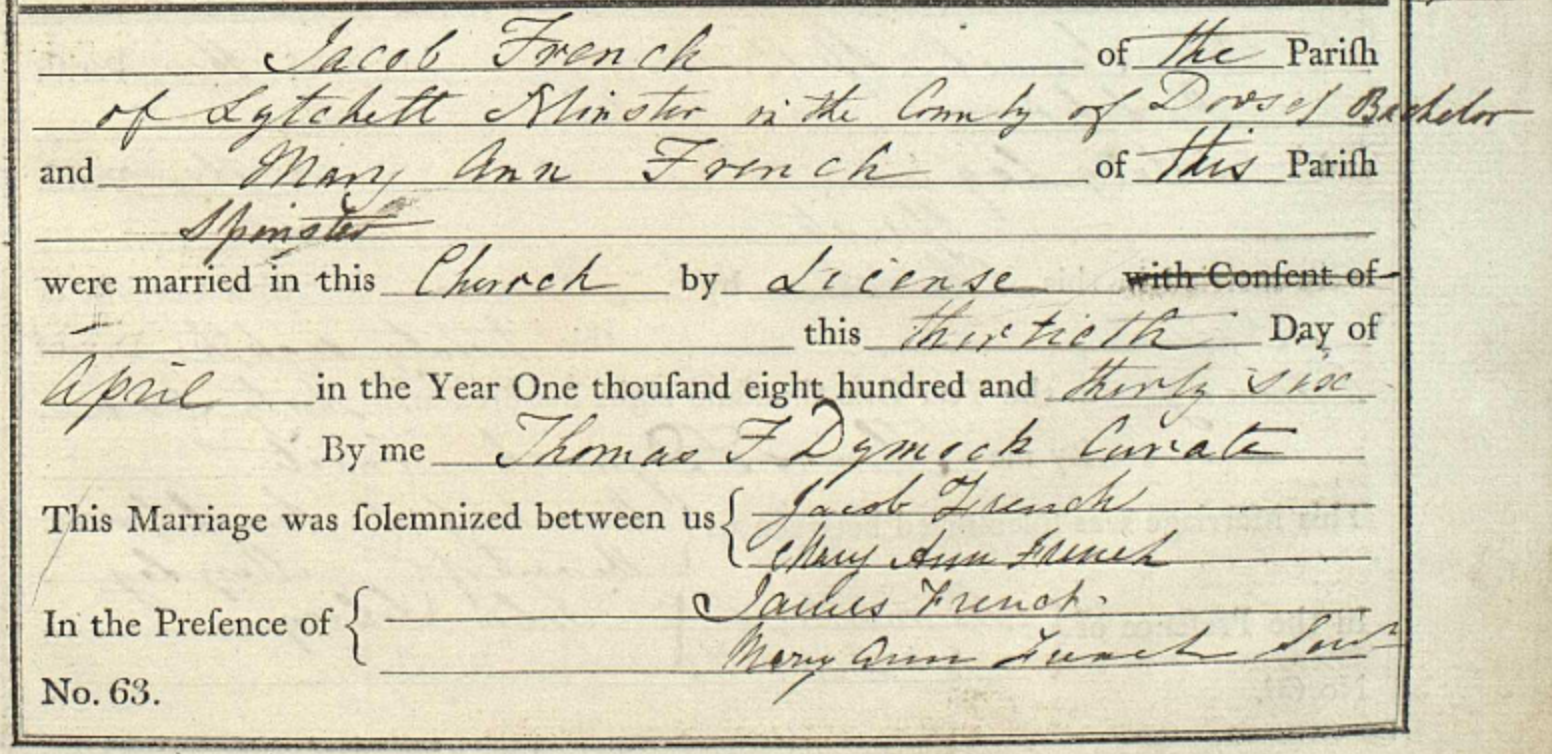 Jacob French of the Pariſh
of Lytchett Minster in the County of Dorset Bachelor
and Mary Ann French of this Pariſh
Spinster
were married in this Church by License with Conſent of
this thirtieth Day of
April in the Year One thouſand eight hundred and thirty six
By me Thomas F Dymock Curate
This Marriage was ſolemnized between us { Jacob French
Mary Ann French
In the Preſence of { James French.
Mary Ann French Senr
No. 63.